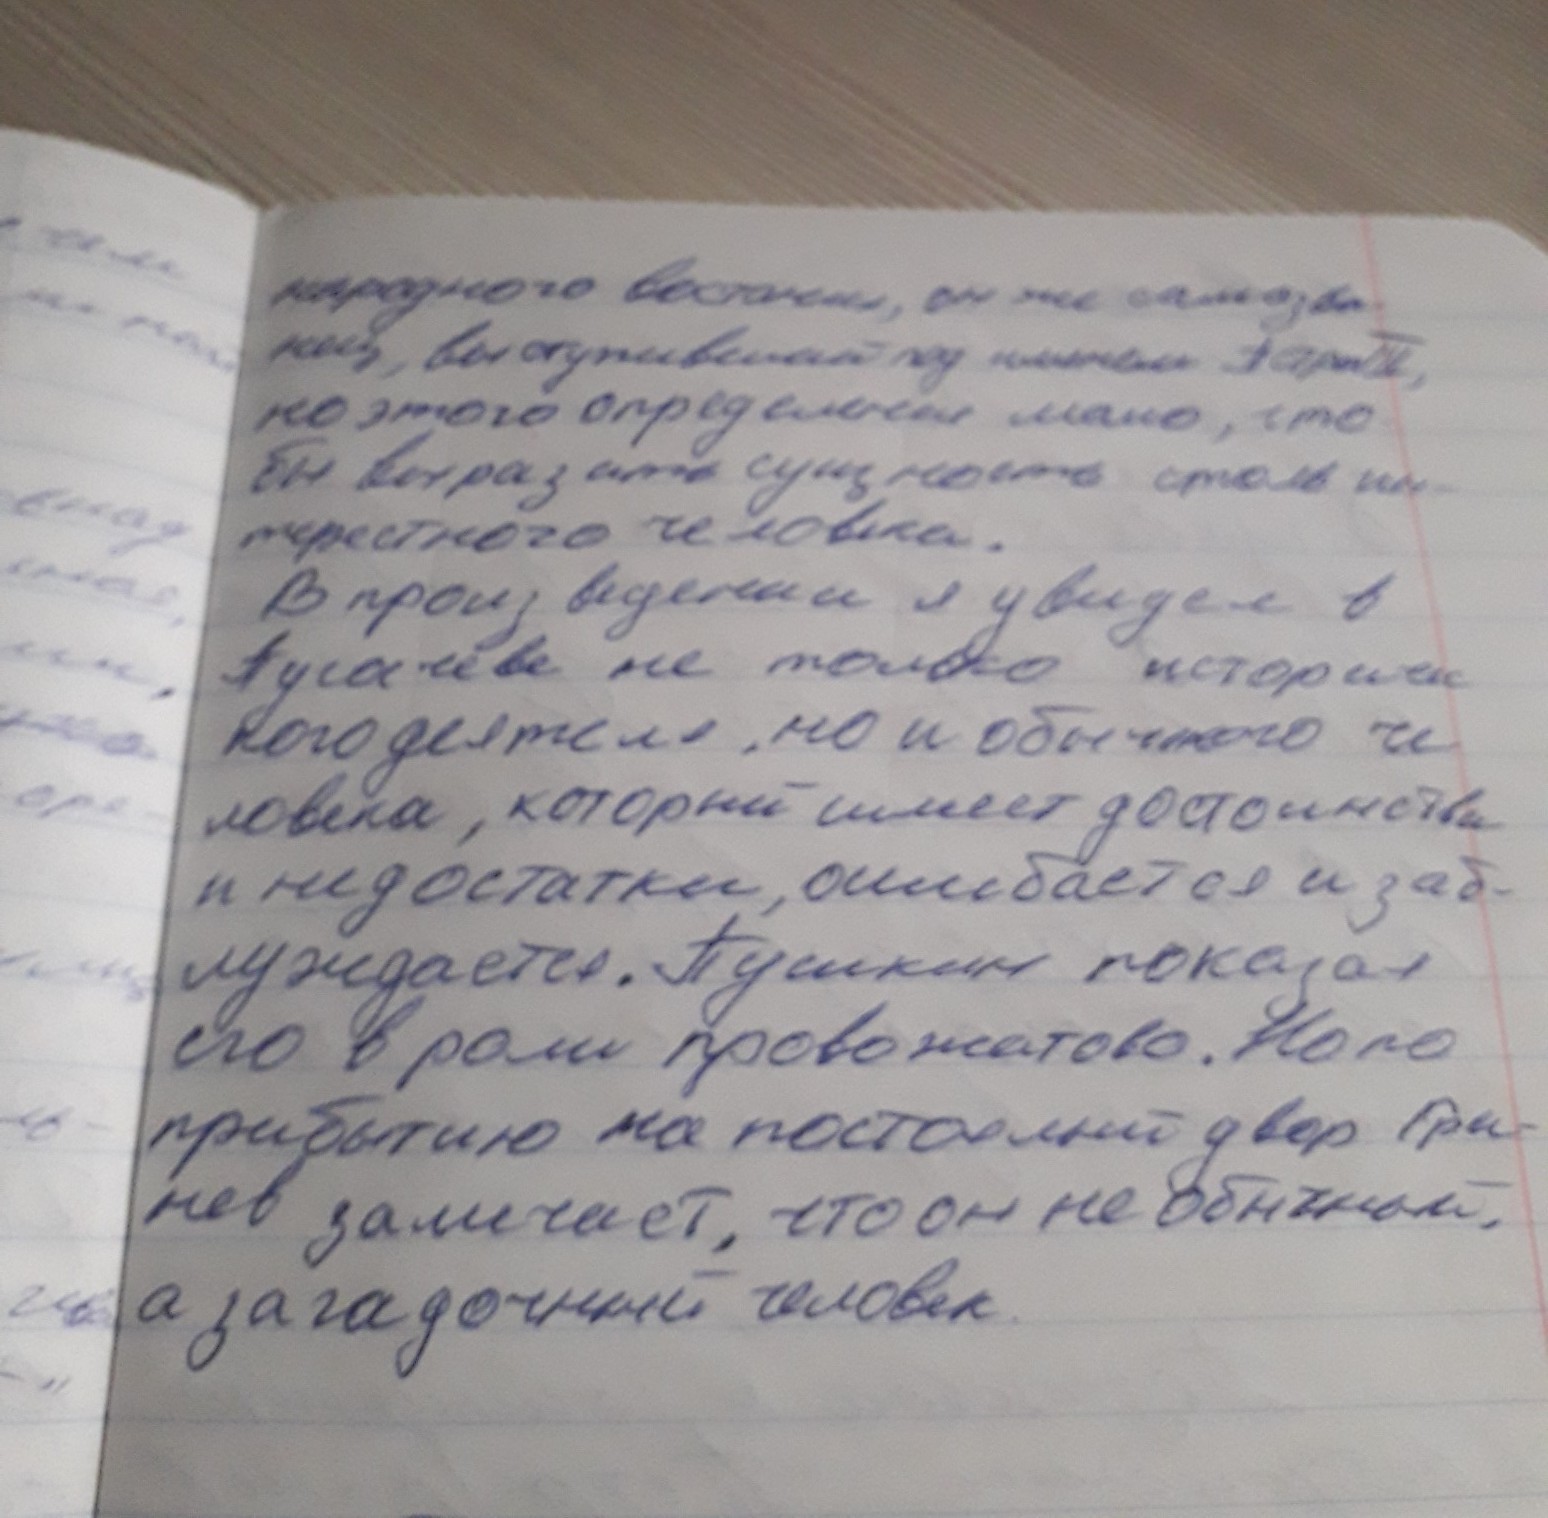 народного востания, он же самозва-
нец, выступивший под именем
но этого определения мало, что
бы выразить сущность столь ин-
терестного человека.
В произведении я увидел в
Пугачёве не только историчес
кого деятеля, но и обычного че
ловека, который имеет достоинства
и недостатки, ошибается и заб-
луждается. Пушкин показал
его в роли провожатово. Но по
прибытию на постоялый двор Гри-
нев замечает, что он не обычный,
а загадочный человек.